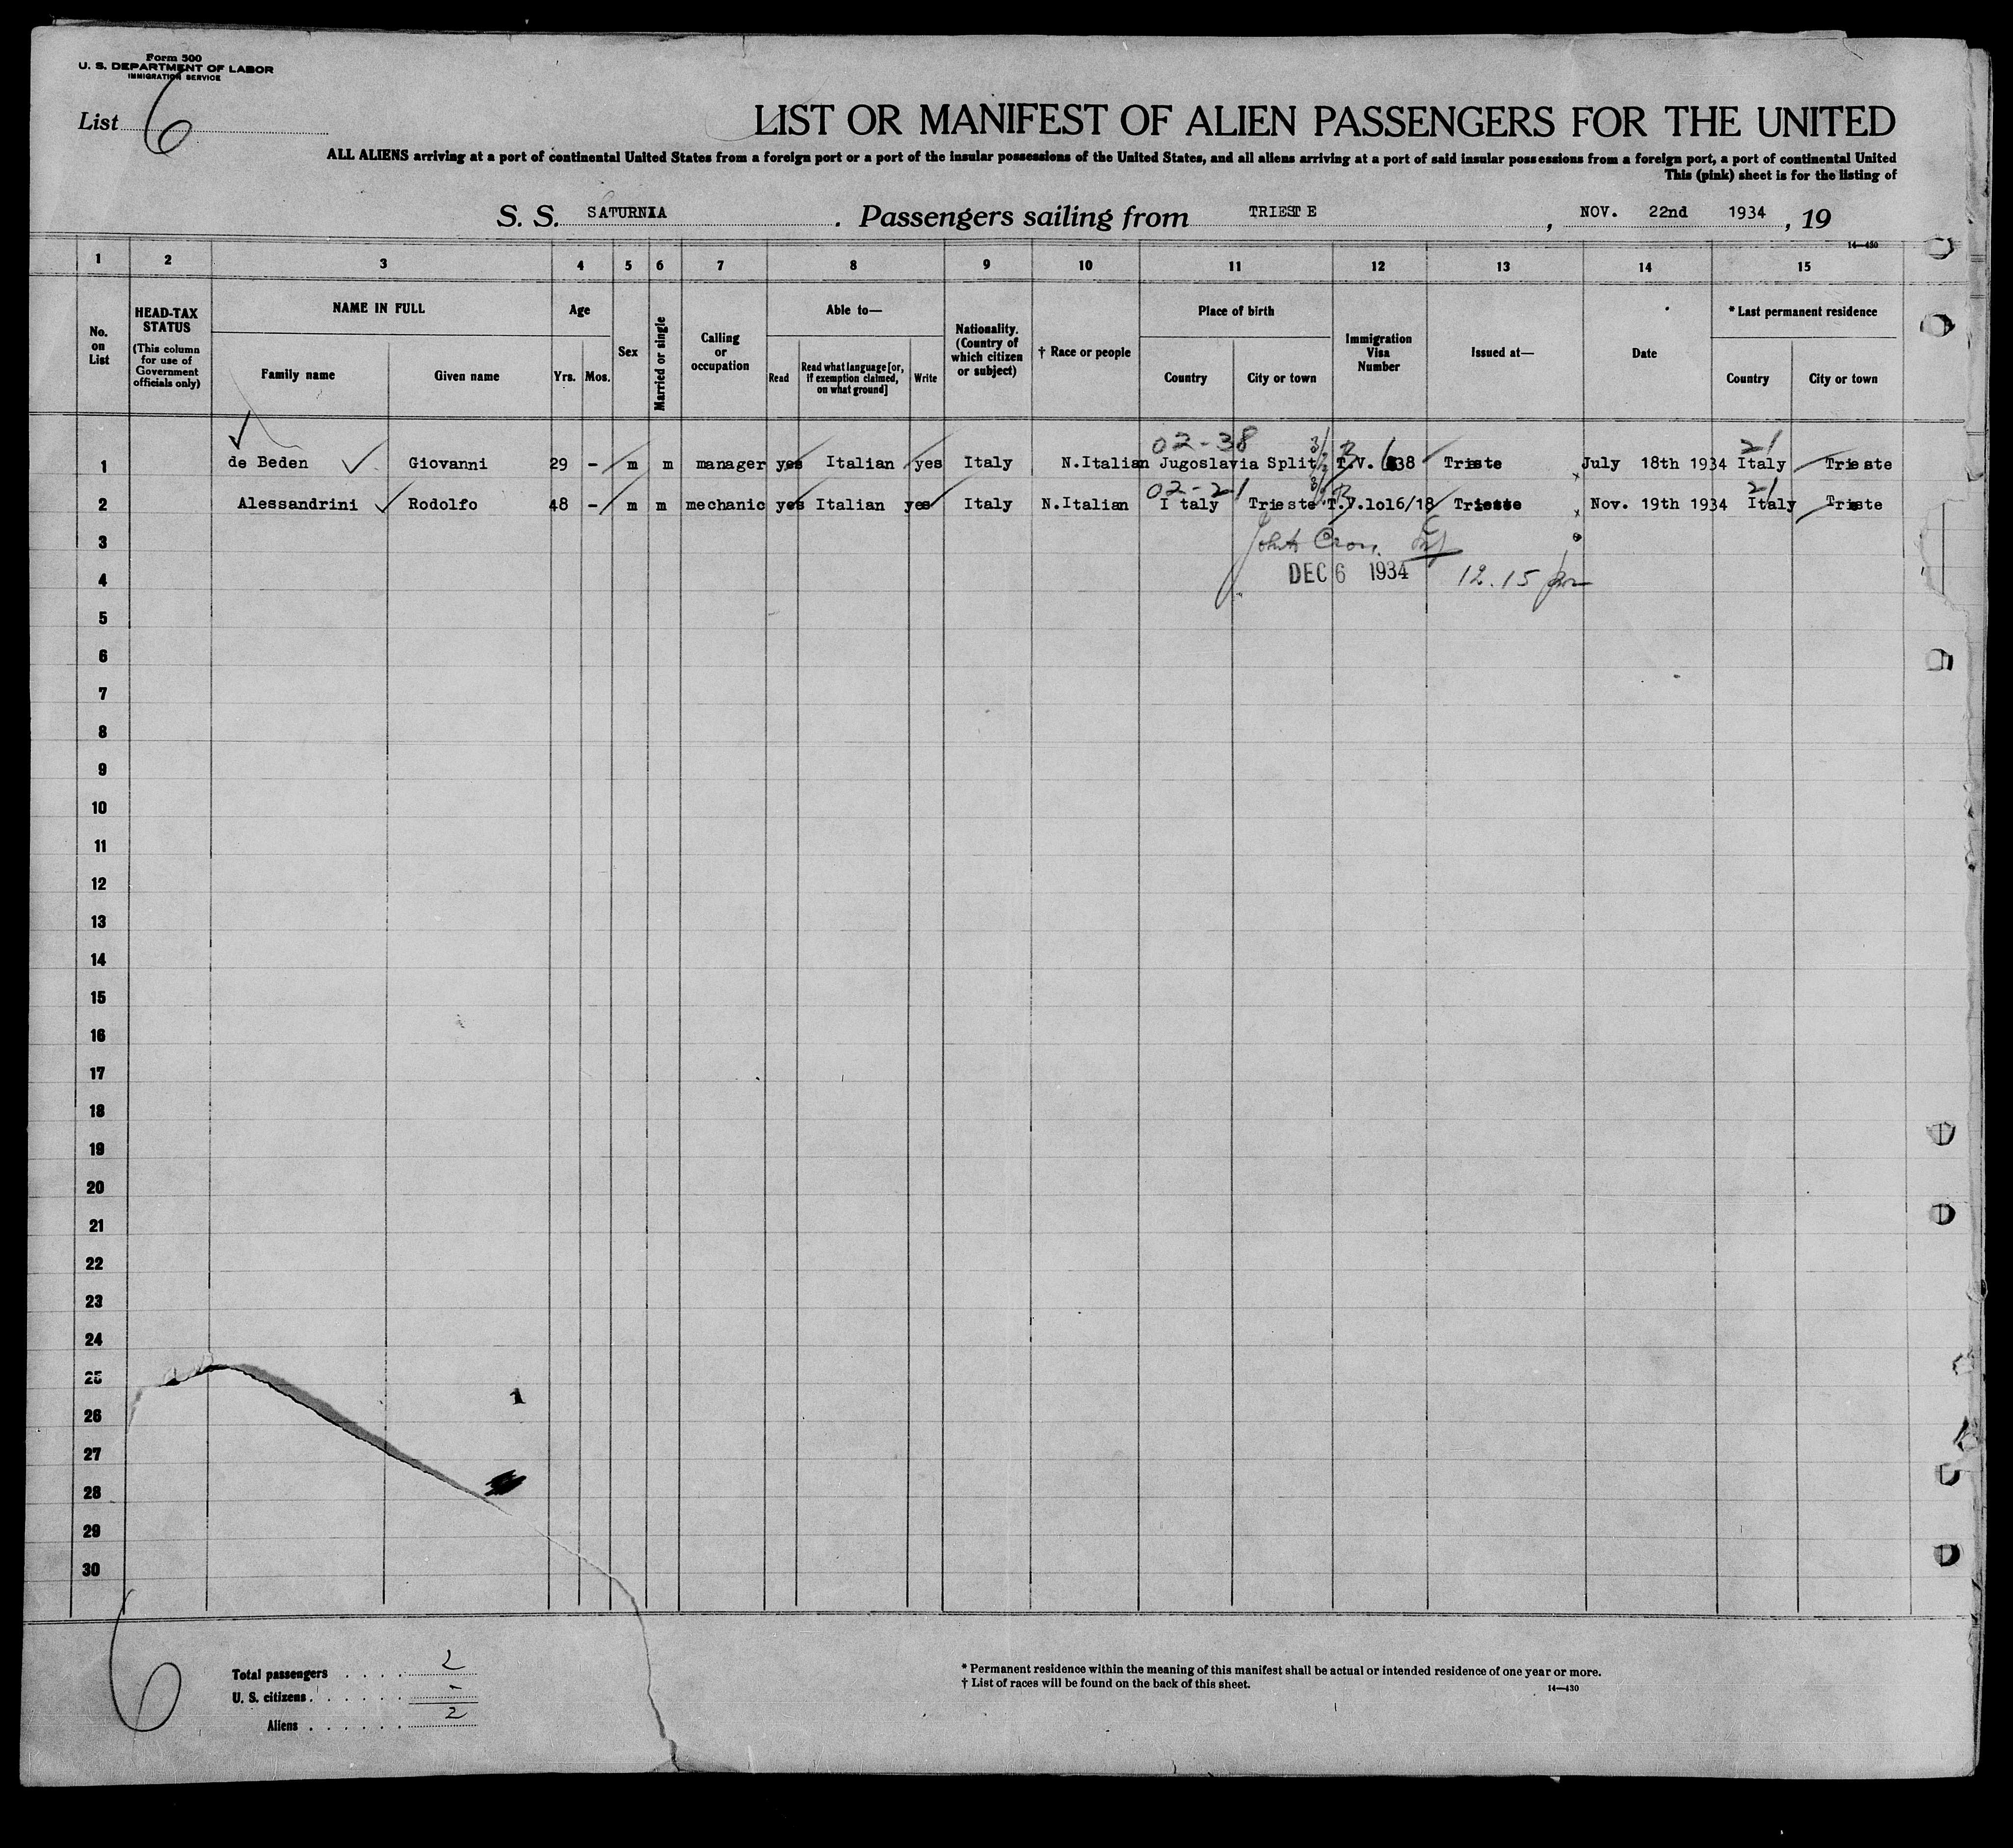 Form 500
U. S. DEPARTMENT OF LABOR
IMMIGRATION SERVICE
List 6
LIST OR MANIFEST OF ALIEN PASSENGERS FOR THE UNITED
ALL ALIENS arriving at a port of continental United States from a foreign port or a port of the insular possessions of the United States, and all aliens arriving at a port of said insular possessions from a foreign port, a port of continental United
This (pink) sheet is for the listing of
S. S. SATURNIA . Passengers sailing from TRIESTE , NOV. 22nd 1934 , 19
14—430
1 2 3 4 5 6 7 8 9 10 11 12 13 14 15
No. on List
HEAD-TAX STATUS
(This column for use of Government officials only)
NAME IN FULL
Family name Given name
Age
Yrs. Mos.
Sex
Married or single
Calling or occupation
Able to—
Read
Read what language [or, if exemption claimed, on what ground]
Write
Nationality. (Country of which citizen or subject)
† Race or people
Place of birth
Country City or town
Immigration Visa Number
Issued at—
Date
* Last permanent residence
Country City or town
02-38 21
1 de Beden Giovanni 29 - m m manager yes Italian yes Italy N.Italian Jugoslavia Split T.V. 638 Trieste July 18th 1934 Italy Trieste
02-21 21
2 Alessandrini Rodolfo 48 - m m mechanic yes Italian yes Italy N.Italian I taly Trieste T.V.lol6/18 Trieste Nov. 19th 1934 Italy Trieste
3
DEC 6 1934 12.15 pm
4
5
6
7
8
9
10
11
12
13
14
15
16
17
18
19
20
21
22
23
24
25
26
27
28
29
30
6
Total passengers . . . . 2
U. S. citizens . . . . . . -
Aliens . . . . . . 2
* Permanent residence within the meaning of this manifest shall be actual or intended residence of one year or more.
† List of races will be found on the back of this sheet.
14—430